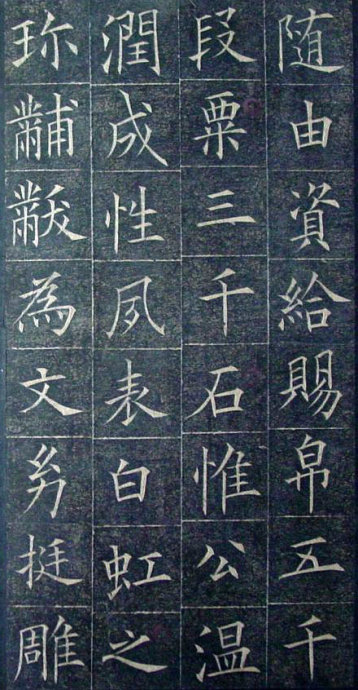 随由資給賜帛五千
段粟三千石惟公温
潤成性夙表白虹之
珎黼黻為文㓜挺雕